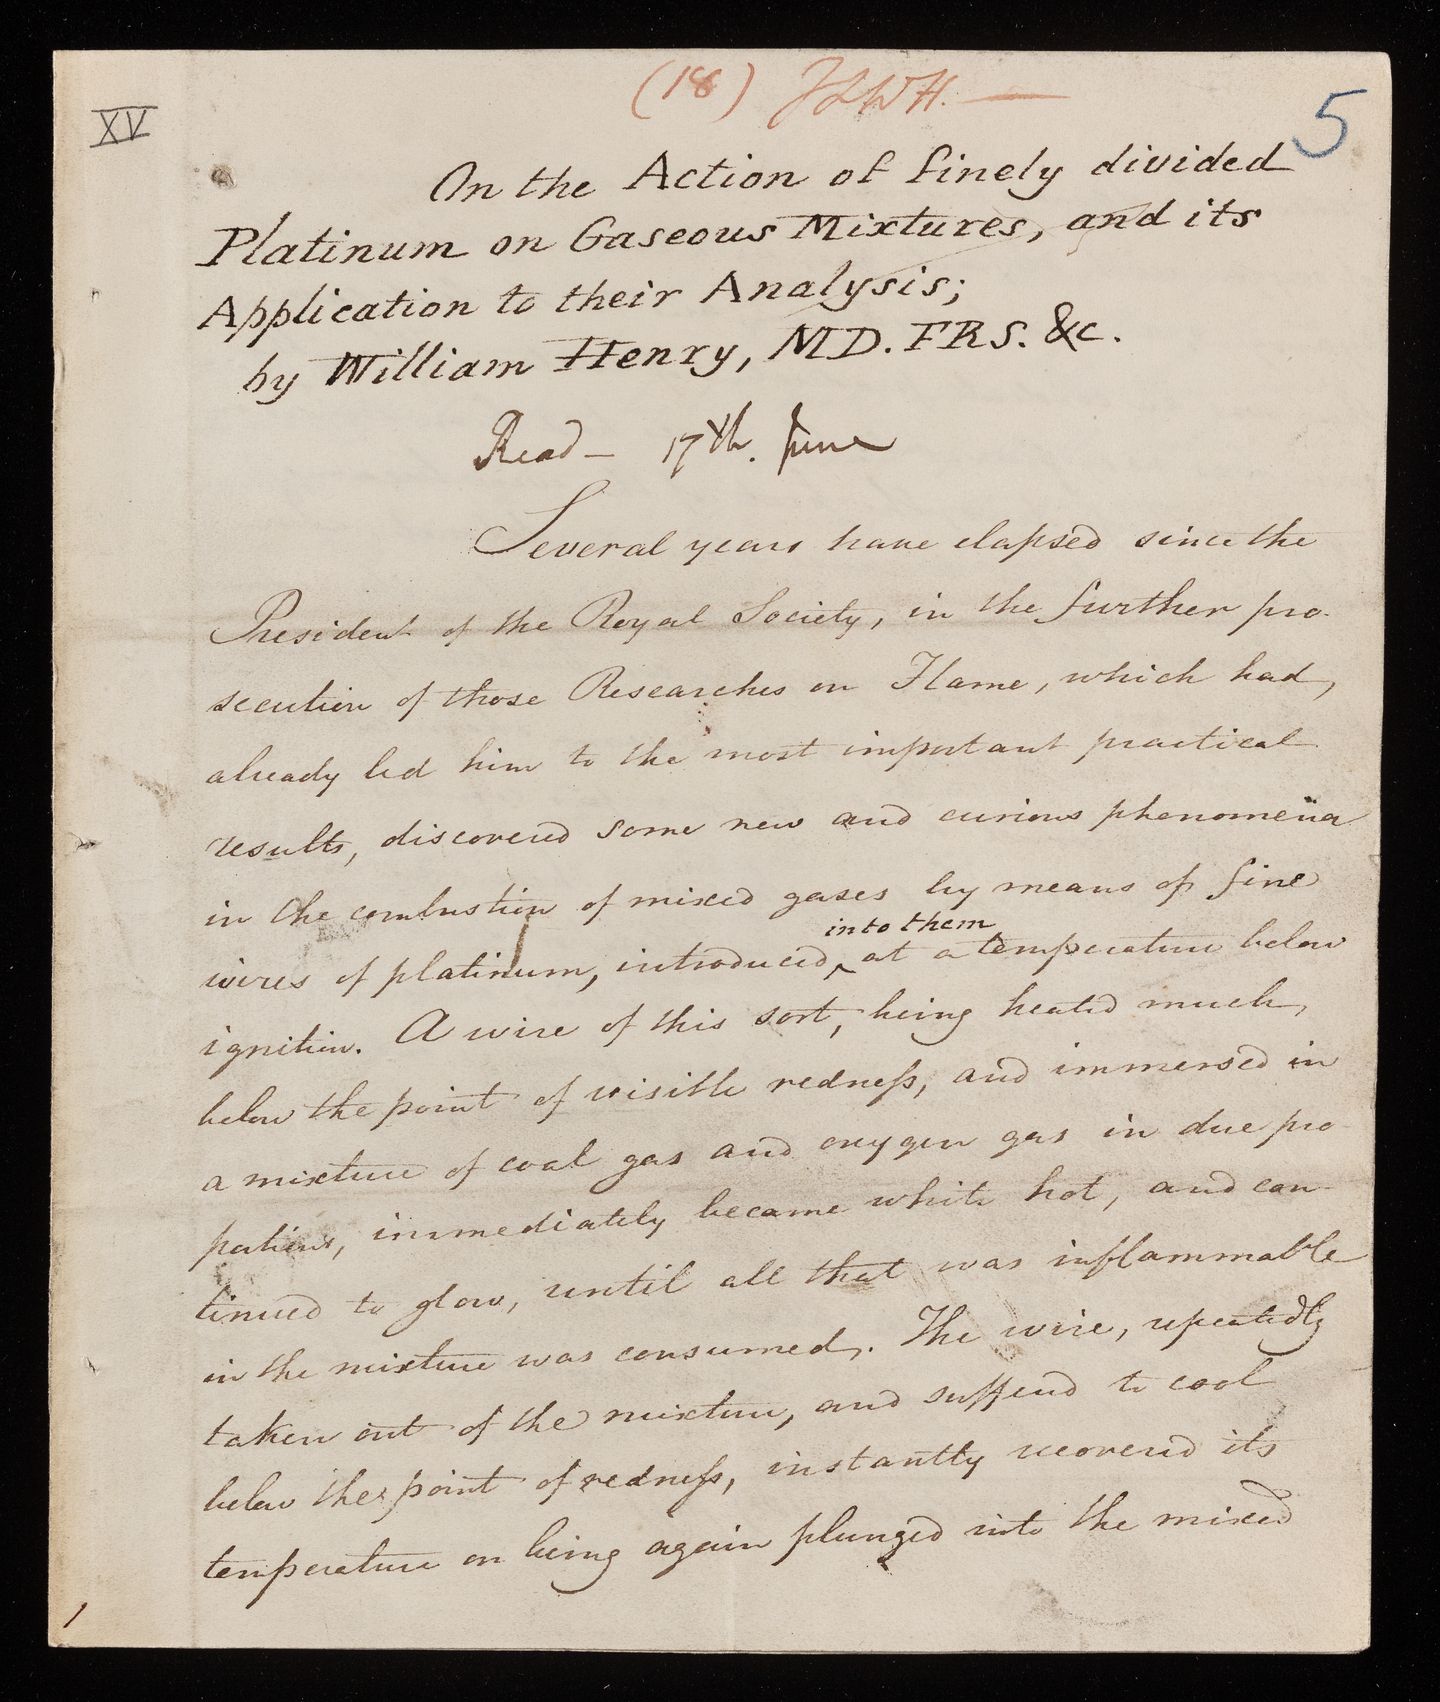 (18)
XV
5
On the Action of finely divided
Platinum on Gaseous Mixtures, and its
Application to their Analysis;
by William Henry, MD. FRS. &c.
Read — 17th. June
Several years have elapsed since the
President of the Royal Society, in the further pro-
secution of those Researches on Flame, which had,
already led him to the most important practical
results, discovered some new and curious phenomena
in the combustion of mixed gases by means of fine
into them
wires of platinum, introduced ‸ at a temperature below
ignition. A wire of this sort, being heated much,
below the point of visible redneſs, and immersed in
a mixture of coal gas and oxygen gas in due pro-
portions, immediately became white hot, and con-
tinued to glow, until all that was inflammable
in the mixture was consumed. The wire, repeatedly
taken out of the mixture, and suffered to cool
below the point of redneſs, instantly recovered its
temperature on being again plunged into the mixed
1